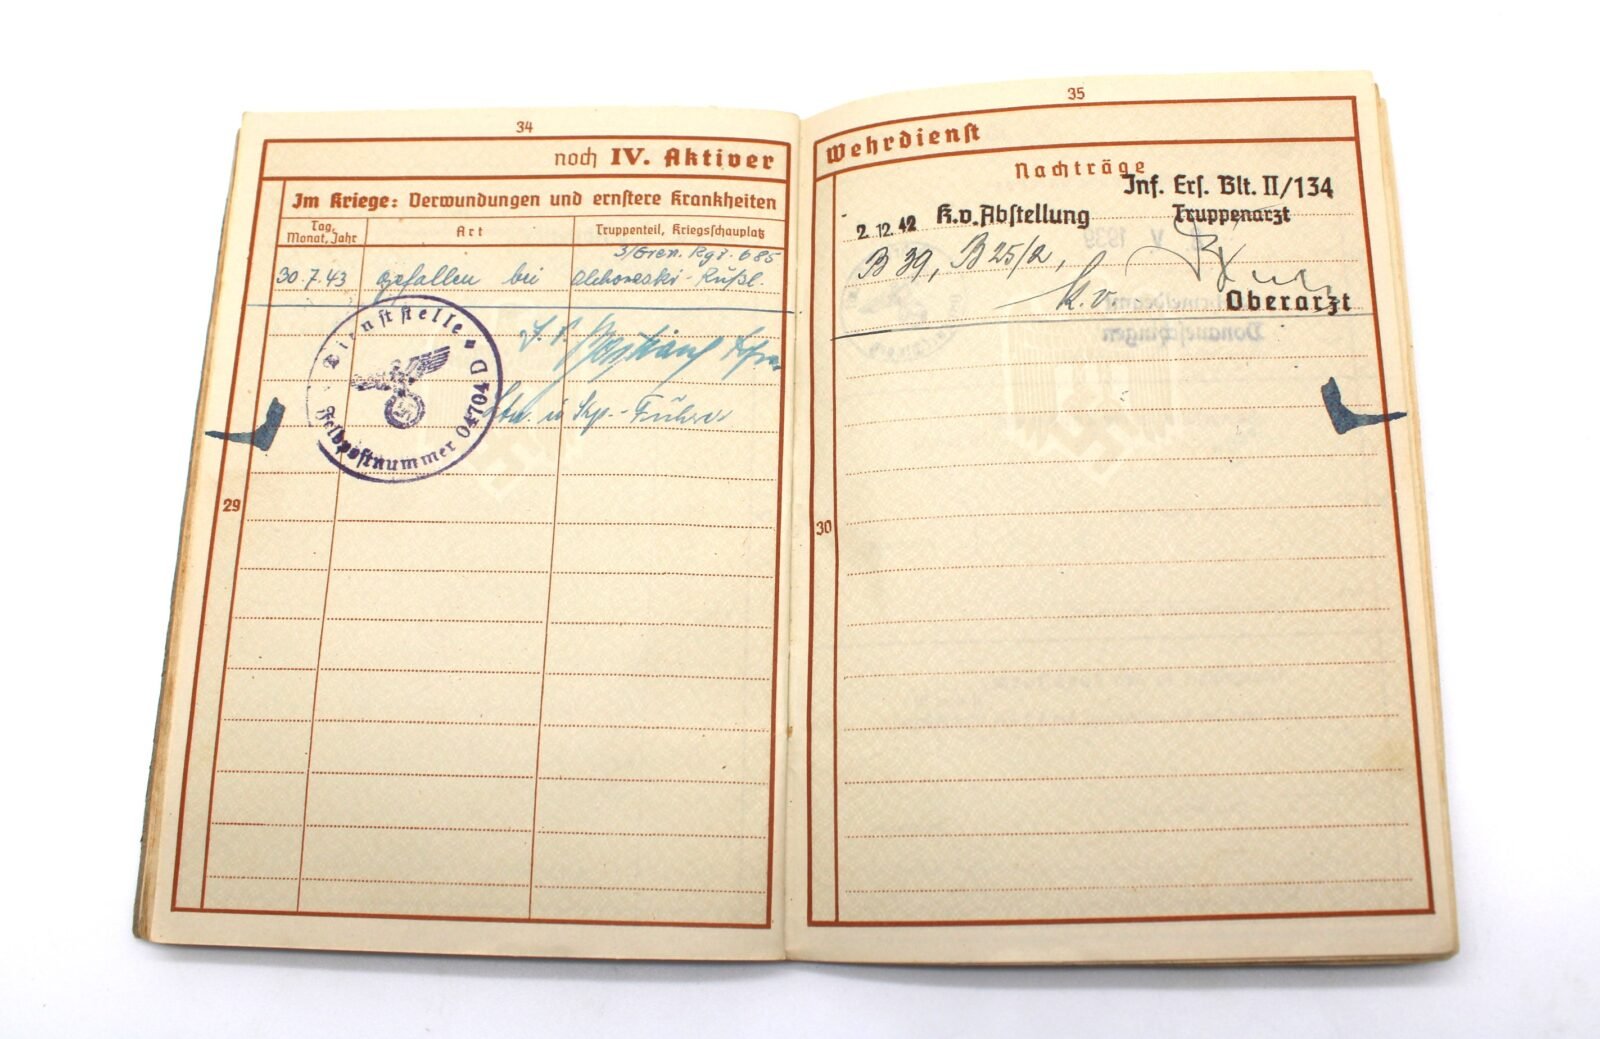 34
noch IV. Aktiver
Im Kriege: Verwundungen und ernstere Krankheiten
Tag, Monat, Jahr
Art
Truppenteil, Kriegsschauplatz
3/Gren. Rgt. 685
30.7.43 gefallen bei Rußl.
Dienststelle
Feldpostnummer 04704 D
Ltn. u. Kp.-Führer
29
35
Wehrdienst
Nachträge
Inf. Ers. Btl. II/134
2.12.42 K.v. Abstellung Truppenarzt
B 39, B 25/2,
k.v.
Oberarzt
30